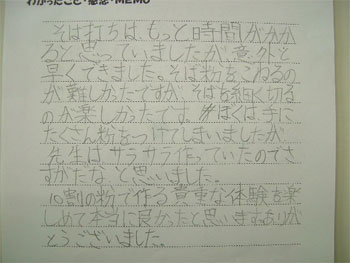 わかったこと・感想・MEMO
そば打ちは、もっと時間がかか
ると思っていましたが意外と
早くできました。そば粉をこねるの
が難しかったですが、そばを細く切る
のが楽しかったです。ぼくは、手に
たくさん粉をつけてしまいましたが
先生はサラサラ作っていたのでさ
すがだな、と思いました。
10割の粉で作る貴重な体験を楽
しめて本当に良かったと思いますありが
とうございました。